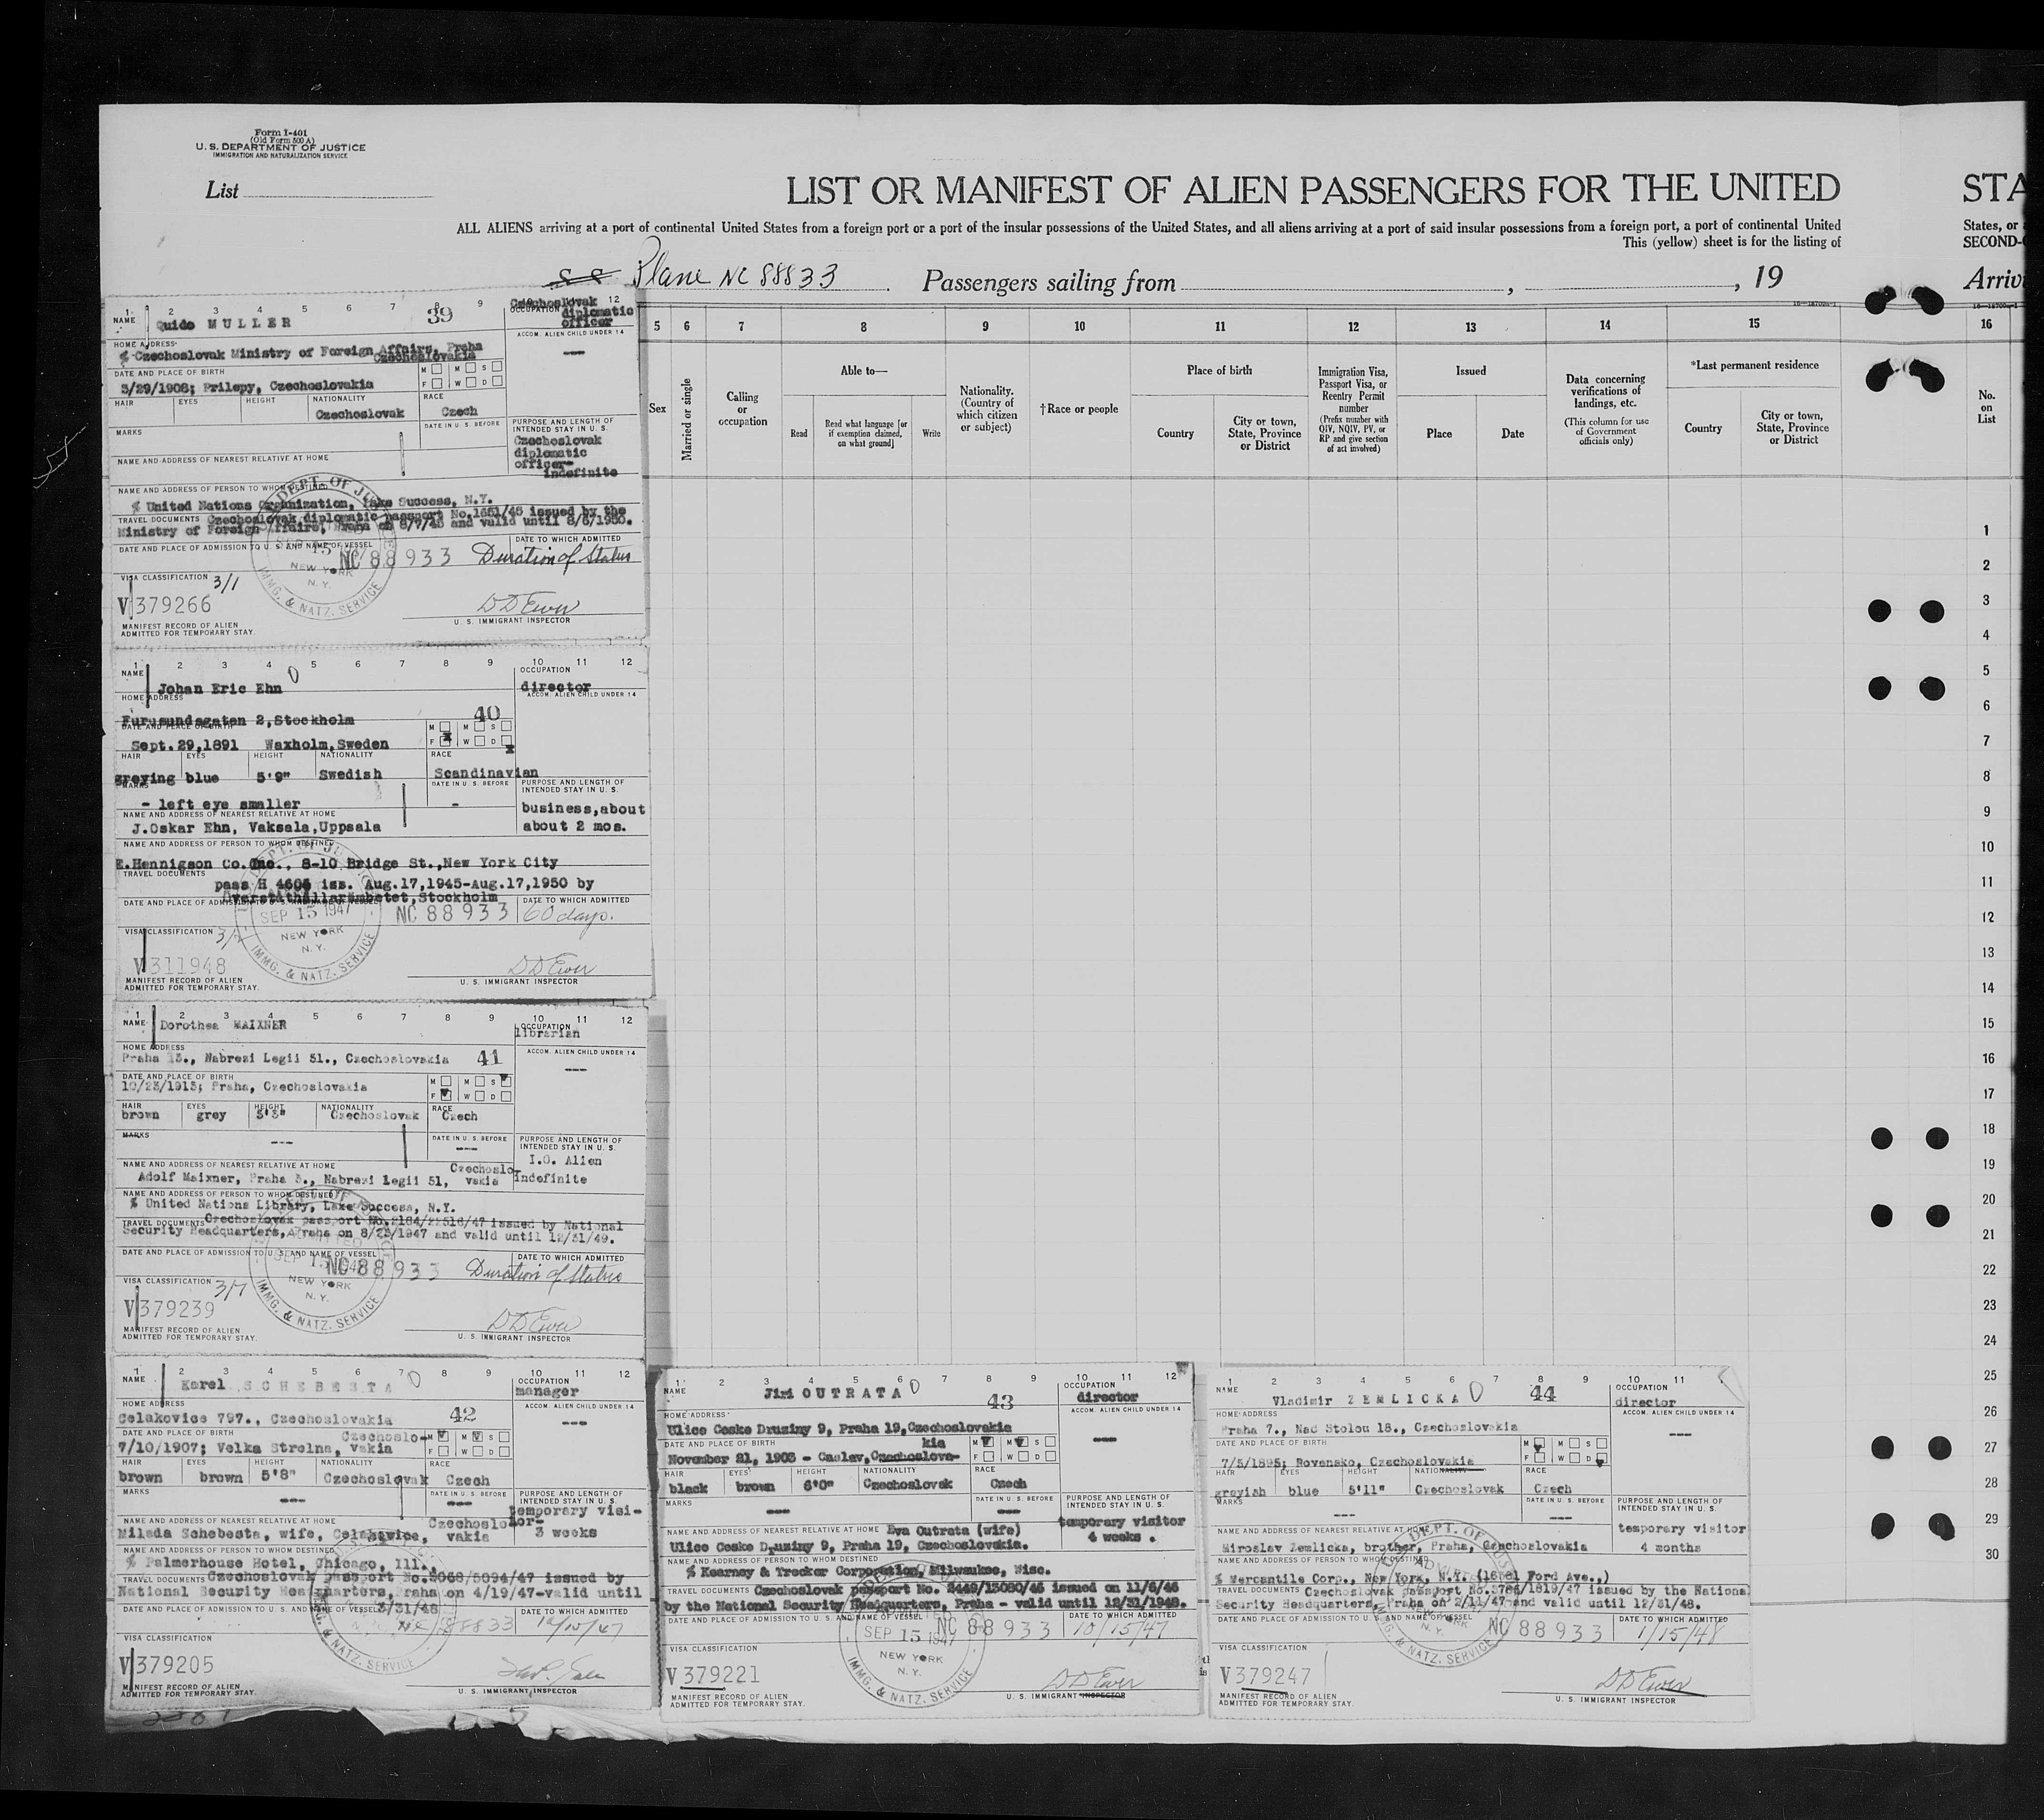 Form I-401
(Old Form 500 A)
U. S. DEPARTMENT OF JUSTICE
IMMIGRATION AND NATURALIZATION SERVICE
List
LIST OR MANIFEST OF ALIEN PASSENGERS FOR THE UNITED
STA
ALL ALIENS arriving at a port of continental United States from a foreign port or a port of the insular possessions of the United States, and all aliens arriving at a port of said insular possessions from a foreign port, a port of continental United
States, or
This (yellow) sheet is for the listing of
SECOND-
Plane NC 88833 Passengers sailing from , , 19
Arriv
5 6 7 8 9 10 11 12 13 14 15 16
Sex
Married or single
Calling or occupation
Able to—
Read
Read what language [or if exemption claimed, on what ground]
Write
Nationality. (Country of which citizen or subject)
†Race or people
Place of birth
Country
City or town, State, Province or District
Immigration Visa, Passport Visa, or Reentry Permit number
(Prefix number with QIV, NQIV, PV, or RP and give section of act involved)
Issued
Place
Date
Data concerning verifications of landings, etc.
(This column for use of Government officials only)
*Last permanent residence
Country
City or town, State, Province or District
No. on List
1
2
3
4
5
6
7
8
9
10
11
12
13
14
15
16
17
18
19
20
21
22
23
24
25
26
27
28
29
30
1 2 3 4 5 6 7 8 9 10 11 12
NAME Quido MULLER
39
OCCUPATION Czechoslovak diplomatic officer
ACCOM. ALIEN CHILD UNDER 14
---
HOME ADDRESS
% Czechoslovak Ministry of Foreign Affairs, Praha
Czechoslovakia
DATE AND PLACE OF BIRTH
3/29/1908; Prilepy, Czechoslovakia
M M S
F W D
HAIR EYES HEIGHT NATIONALITY RACE
Czechoslovak Czech
MARKS
DATE IN U. S. BEFORE
PURPOSE AND LENGTH OF INTENDED STAY IN U. S.
Czechoslovak
diplomatic
officer-
indefinite
NAME AND ADDRESS OF NEAREST RELATIVE AT HOME
NAME AND ADDRESS OF PERSON TO WHOM DESTINED
% United Nations Organization, Lake Success, N.Y.
TRAVEL DOCUMENTS Czechoslovak diplomatic passport No.1651/45 issued by the
Ministry of Foreign Affairs, Praha on 8/7/45 and valid until 8/6/1950.
DATE AND PLACE OF ADMISSION TO U. S. AND NAME OF VESSEL
NC 88933
DATE TO WHICH ADMITTED
Duration of Status
VISA CLASSIFICATION 3/1
V 379266
NEW YORK
N. Y.
IMMG. & NATZ. SERVICE
D D Ewer
U. S. IMMIGRANT INSPECTOR
MANIFEST RECORD OF ALIEN
ADMITTED FOR TEMPORARY STAY.
1 2 3 4 5 6 7 8 9 10 11 12
NAME Johan Eric Ehn
OCCUPATION
director
ACCOM. ALIEN CHILD UNDER 14
HOME ADDRESS
40
Furusundsgaten 2,Stockholm
DATE AND PLACE OF BIRTH
Sept.29,1891 Waxholm,Sweden
M M S
F x W D x
HAIR EYES HEIGHT NATIONALITY RACE
greying blue 5'9" Swedish Scandinavian
MARKS
- left eye smaller
DATE IN U. S. BEFORE
-
PURPOSE AND LENGTH OF INTENDED STAY IN U. S.
business,about
about 2 mos.
NAME AND ADDRESS OF NEAREST RELATIVE AT HOME
J.Oskar Ehn, Vaksala,Uppsala
NAME AND ADDRESS OF PERSON TO WHOM DESTINED
E.Hennigson Co.Inc., 8-10 Bridge St.,New York City
TRAVEL DOCUMENTS
pass H 4606 iss. Aug.17,1945-Aug.17,1950 by
Overståthållarämbetet,Stockholm
DATE AND PLACE OF ADMISSION TO U. S. AND NAME OF VESSEL
SEP 15 1947 NC 88933
DATE TO WHICH ADMITTED
60 days.
VISA CLASSIFICATION
V 311948
NEW YORK
N. Y.
IMMG. & NATZ. SERVICE
D D Ewer
U. S. IMMIGRANT INSPECTOR
MANIFEST RECORD OF ALIEN
ADMITTED FOR TEMPORARY STAY.
1 2 3 4 5 6 7 8 9 10 11 12
NAME Dorothea MAIXNER
OCCUPATION
librarian
HOME ADDRESS
Praha 13., Nabrezi Legii 51., Czechoslovakia
41
ACCOM. ALIEN CHILD UNDER 14
---
DATE AND PLACE OF BIRTH
10/23/1913; Praha, Czechoslovakia
M M S
F W D
HAIR EYES HEIGHT NATIONALITY RACE
brown grey 5'3" Czechoslovak Czech
MARKS
---
DATE IN U. S. BEFORE
---
PURPOSE AND LENGTH OF INTENDED STAY IN U. S.
I.O. Alien
Indefinite
NAME AND ADDRESS OF NEAREST RELATIVE AT HOME
Adolf Maixner, Praha 3., Nabrezi Legii 51, Czechoslovakia
NAME AND ADDRESS OF PERSON TO WHOM DESTINED
% United Nations Library, Lake Success, N.Y.
TRAVEL DOCUMENTS Czechoslovak passport No.2164/22516/47 issued by National
Security Headquarters, Praha on 8/23/1947 and valid until 12/31/49.
DATE AND PLACE OF ADMISSION TO U. S. AND NAME OF VESSEL
NC 88933
DATE TO WHICH ADMITTED
Duration of Status
VISA CLASSIFICATION 3/7
V 379239
NEW YORK
N. Y.
IMMG. & NATZ. SERVICE
D D Ewer
U. S. IMMIGRANT INSPECTOR
MANIFEST RECORD OF ALIEN
ADMITTED FOR TEMPORARY STAY.
1 2 3 4 5 6 7 8 9 10 11 12
NAME Karel SCHEBESTA
OCCUPATION
manager
HOME ADDRESS
Celakovice 797., Czechoslovakia
42
ACCOM. ALIEN CHILD UNDER 14
---
DATE AND PLACE OF BIRTH
7/10/1907; Velka Strelna, Czechoslovakia
M M S
F W D
HAIR EYES HEIGHT NATIONALITY RACE
brown brown 5'8" Czechoslovak Czech
MARKS
---
DATE IN U. S. BEFORE
---
PURPOSE AND LENGTH OF INTENDED STAY IN U. S.
temporary visitor-
3 weeks
NAME AND ADDRESS OF NEAREST RELATIVE AT HOME
Milada Schebesta, wife, Celakovice, Czechoslovakia
NAME AND ADDRESS OF PERSON TO WHOM DESTINED
% Palmerhouse Hotel, Chicago, Ill.
TRAVEL DOCUMENTS Czechoslovak passport No.3068/5094/47 issued by
National Security Headquarters, Praha on 4/19/47-valid until
3/31/48
DATE AND PLACE OF ADMISSION TO U. S. AND NAME OF VESSEL
NC 88833
DATE TO WHICH ADMITTED
10/15/47
VISA CLASSIFICATION
V 379205
NATZ. SERVICE
U. S. IMMIGRANT INSPECTOR
MANIFEST RECORD OF ALIEN
ADMITTED FOR TEMPORARY STAY.
1 2 3 4 5 6 7 8 9 10 11 12
NAME Jiri OUTRATA
43
OCCUPATION
director
HOME ADDRESS
Ulice Ceske Druziny 9, Praha 19,Czechoslovakia
ACCOM. ALIEN CHILD UNDER 14
---
DATE AND PLACE OF BIRTH
November 21, 1903 - Caslav,Czechoslovakia
M M S
F W D
HAIR EYES HEIGHT NATIONALITY RACE
black brown 6'0" Czechoslovak Czech
MARKS
---
DATE IN U. S. BEFORE
---
PURPOSE AND LENGTH OF INTENDED STAY IN U. S.
temporary visitor
4 weeks .
NAME AND ADDRESS OF NEAREST RELATIVE AT HOME Eva Outrata (wife)
Ulice Ceske Druziny 9, Praha 19, Czechoslovakia.
NAME AND ADDRESS OF PERSON TO WHOM DESTINED
% Kearney & Trecker Corporation, Milwaukee, Wisc.
TRAVEL DOCUMENTS Czechoslovak passport No. 2449/13080/46 issued on 11/6/46
by the National Security Headquarters, Praha - valid until 12/31/1948.
DATE AND PLACE OF ADMISSION TO U. S. AND NAME OF VESSEL
SEP 15 1947 NC 88933
DATE TO WHICH ADMITTED
10/15/47
VISA CLASSIFICATION
V 379221
NEW YORK
N. Y.
IMMG. & NATZ. SERVICE
D D Ewer
U. S. IMMIGRANT INSPECTOR
MANIFEST RECORD OF ALIEN
ADMITTED FOR TEMPORARY STAY.
1 2 3 4 5 6 7 8 9 10 11
NAME Vladimir ZEMLICKA
44
OCCUPATION
director
HOME ADDRESS
Praha 7., Nad Stolou 18., Czechoslovakia
ACCOM. ALIEN CHILD UNDER 14
---
DATE AND PLACE OF BIRTH
7/5/1895; Rovensko, Czechoslovakia
M M S
F W D
HAIR EYES HEIGHT NATIONALITY RACE
greyish blue 5'11" Czechoslovak Czech
MARKS
---
DATE IN U. S. BEFORE
---
PURPOSE AND LENGTH OF INTENDED STAY IN U. S.
temporary visitor
4 months
NAME AND ADDRESS OF NEAREST RELATIVE AT HOME
Miroslav Zemlicka, brother, Praha, Czechoslovakia
NAME AND ADDRESS OF PERSON TO WHOM DESTINED
% Mercantile Corp., New York, N.Y. Ford Ave.,)
TRAVEL DOCUMENTS Czechoslovak passport No.3786/1819/47 issued by the National
Security Headquarters, Praha on 2/11/47 and valid until 12/31/48.
DATE AND PLACE OF ADMISSION TO U. S. AND NAME OF VESSEL
NC 88933
DATE TO WHICH ADMITTED
1/15/48
VISA CLASSIFICATION
V 379247
N. Y.
IMMG. & NATZ. SERVICE
D D Ewer
U. S. IMMIGRANT INSPECTOR
MANIFEST RECORD OF ALIEN
ADMITTED FOR TEMPORARY STAY.